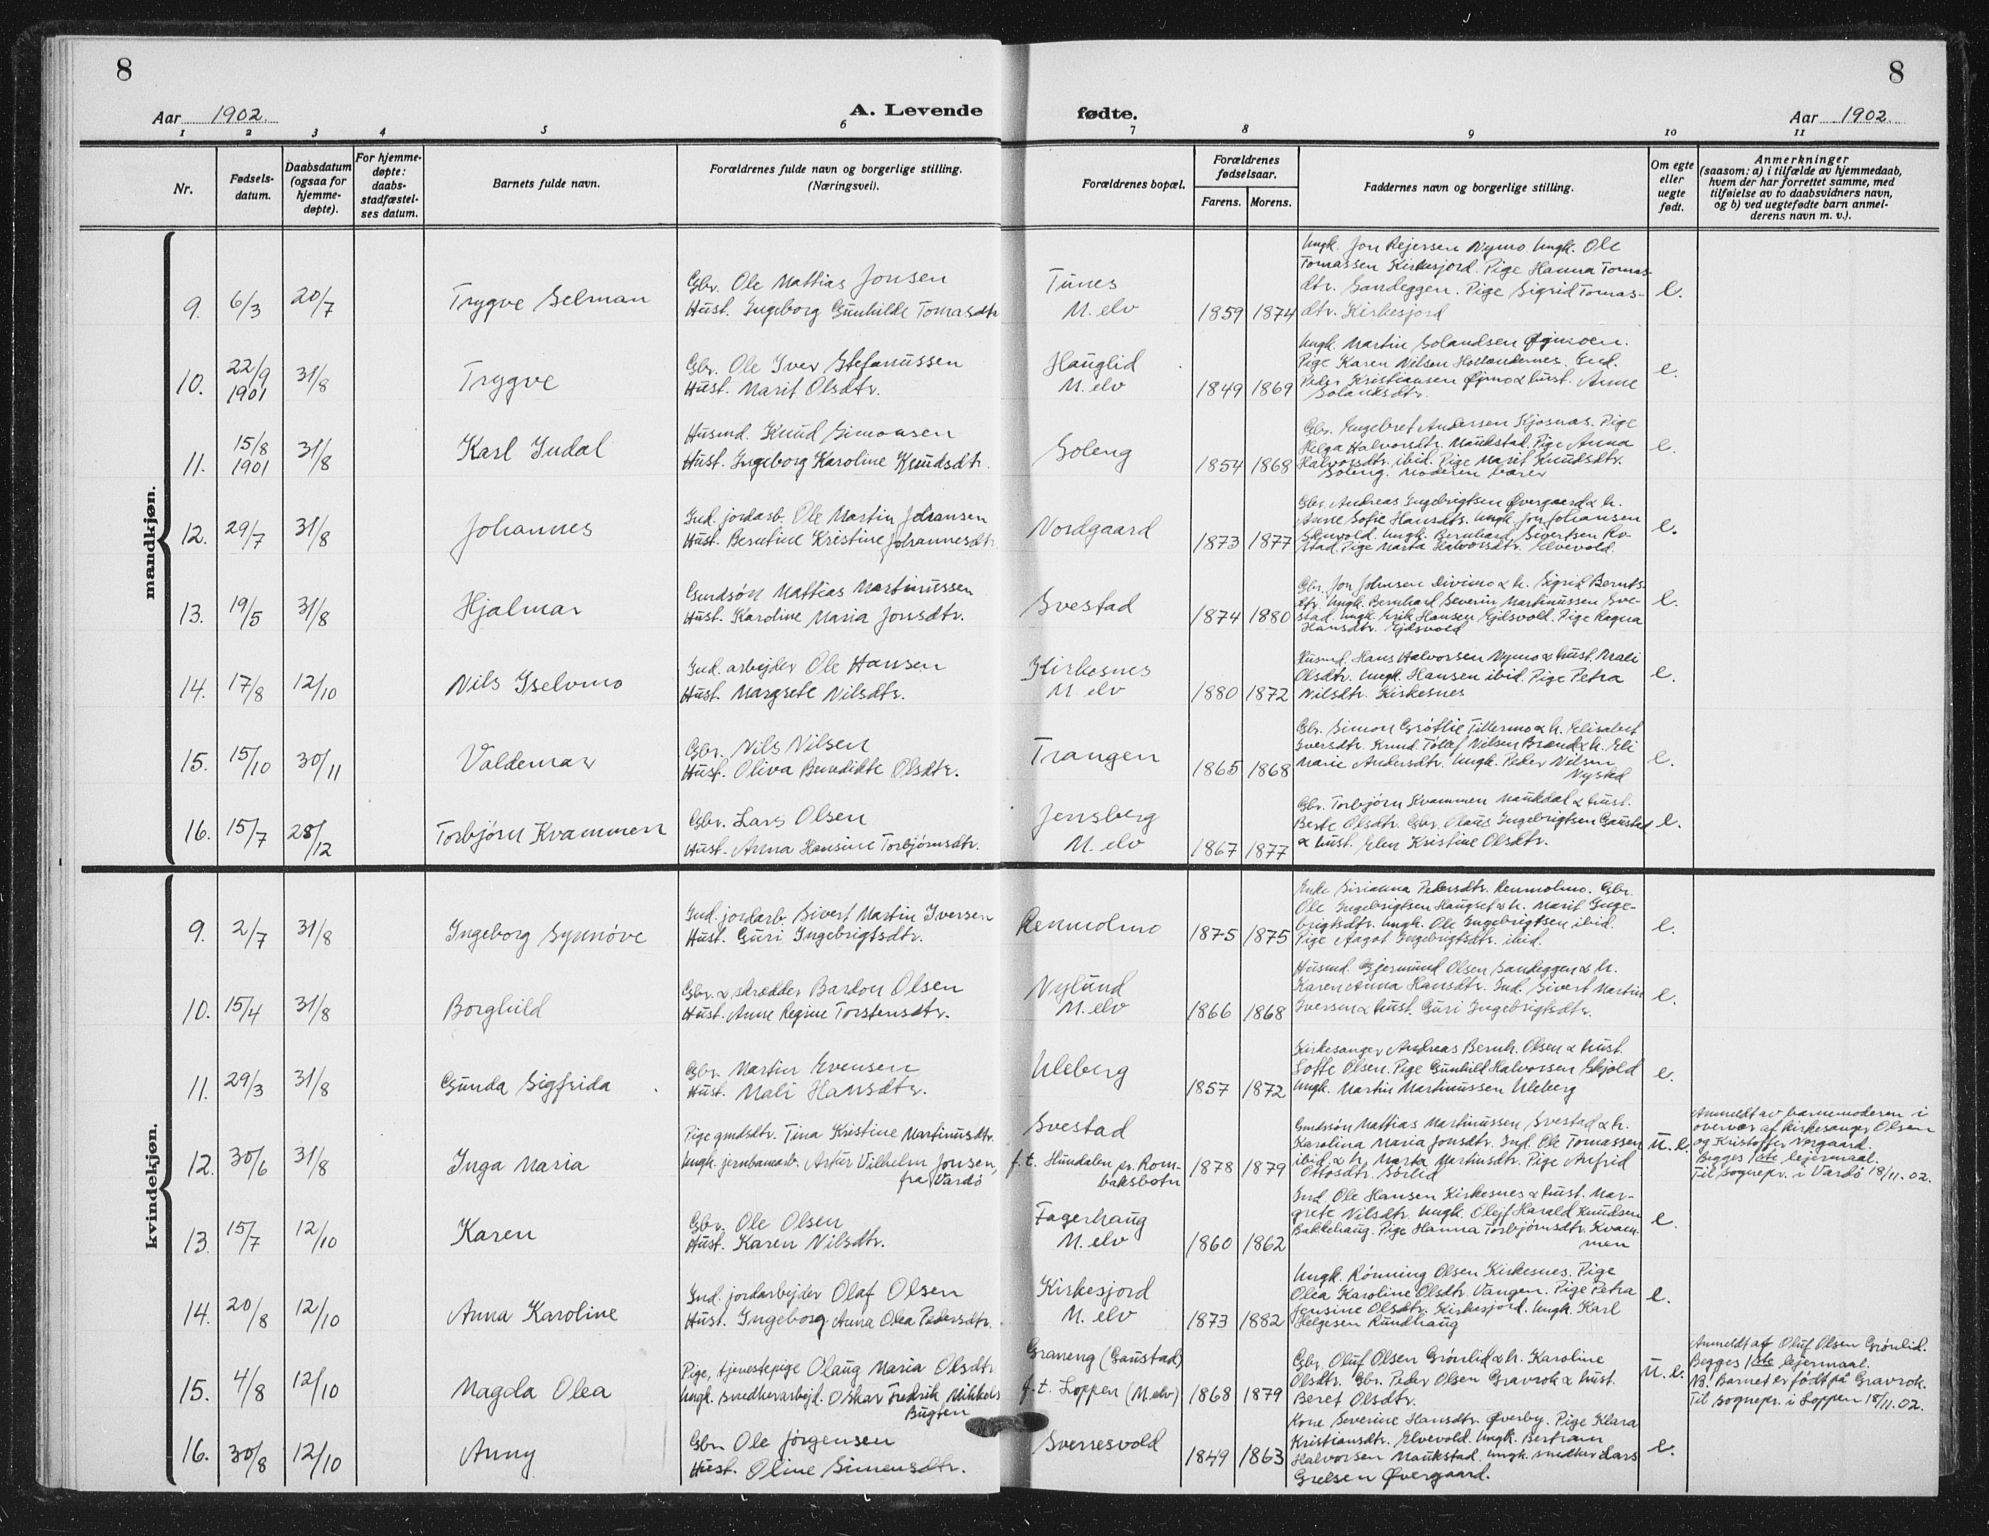 8
8
Aar 1902.
A. Levende
fødte.
Aar 1902.
1 2 3 4 5 6 7 8 9 10 11
Nr.
Fødsels-
datum.
Daabsdatum
(ogsaa for
hjemme-
døpte).
For hjemme-
døpte:
daabs-
stadfæstel-
ses datum.
Barnets fulde navn.
Forældrenes fulde navn og borgerlige stilling.
(Næringsvei).
Forældrenes bopæl.
Forældrenes
fødselsaar.
Farens. Morens.
Faddernes navn og borgerlige stilling.
Om egte
eller
uegte
født.
Anmerkninger
(saasom: a) i tilfælde av hjemmedaab,
hvem der har forrettet samme, med
tilføielse av to daabsvidners navn,
og b) ved uegtefødte barn anmel-
derens navn m. v.).
mandkjøn.
9. 6/3 20/7 Trygve Selman
Gbr. Ole Mattias Jonsen
Hust. Ingeborg Gunhilde Tomasdtr
Tunes
M. elv
1859 1874
Ungk. Jon Rejersen Nymo. Ungk. Ole
Tomassen Kirkesjord. Pige Hanna Tomas-
dtr. Sandeggen. Pige Sigrid Tomas-
dtr. Kirkesjord
e.
10. 22/9 1901 31/8 Trygve
Gbr. Ole Iver Stefanussen
Hust. Marit Olsdtr.
Hauglid
M. elv
1849 1869
Ungk. Martin Solandsen Øjmoen.
Pige Karen Nilsen Hollandernes. Ind.
Peder Kristiansen Øjmo & hust. Anne
Solandsdtr.
e.
11. 15/8 1901 31/8 Karl Indal
Husmd. Knud Simonsen
Hust. Ingeborg Karoline Knudsdtr.
Soleng
1854 1868
Gbr. Engebret Andersen Kjosnas. Pige
Helga Halvorsdtr. Maukstad. Pige Anna
Halvorsdtr. ibid. Pige Marit Knudsdtr.
Soleng. Moderen bærer
e.
12. 29/7 31/8 Johannes
Ind. jordarb. Ole Martin Johansen
Hust. Berntine Kristine Johannesdtr.
Nordgaard
1873 1877
Gbr. Andreas Ingebrigtsen Øvergaard & h.
Anne Sofie Hansdtr. Ungk. Jon Johansen
Skuvold. Ungk. Bernhard Sivertsen Ro-
stad. Pige Marta Halvorsdtr. Elvevold.
e.
13. 19/5 31/8 Hjalmar
Gmdsøn Mattias Martinussen
Hust. Karoline Maria Jonsdtr.
Svestad
1874 1880
Gbr. Jon Johnsen Divimo & h. Sigrid Bernts-
dtr. Ungk. Bernhard Severin Martinussen Sve-
stad. Ungk. Erik Hansen Ejdsvold. Pige Ragna
Hansdtr. Ejdsvold
e.
14. 17/8 12/10 Nils Iselvmo
Ind. arbejder Ole Hansen
Hust. Margrete Nilsdtr.
Kirkesnes
M. elv
1880 1872
Husmd. Hans Halvorsen Nymo & hust. Mali
Olsdtr. Ungk. Hansen ibid. Pige Petra
Nilsdtr. Kirkesnes
e.
15. 15/10 30/11 Valdemar
Gbr. Nils Nilsen
Hust. Oliva Benedikte Olsdtr.
Trangen
1865 1868
Gbr. Simon Grøtlie Tillermo & h. Elisabet
Iversdtr. Knud Tollef Nilsen Brand & h. Eli
Marie Andersdtr. Ungk. Peder Nilsen
Nysted
e.
16. 15/7 28/12 Torbjørn Kvammen
Gbr. Lars Olsen
Hust. Anna Hansine Torbjørnsdtr.
Jensberg
M. elv
1867 1877
Gbr. Torbjørn Kvammen Maukdal & hust.
Berte Olsdtr. Gbr. Olaus Ingebrigtsen Gausted
& hust. Elen Kristine Olsdtr.
e.
kvindekjøn.
9. 2/7 31/8 Ingeborg Synnøve
Ind. jordarb. Sivert Martin Iversen
Hust. Guri Ingebrigtsdtr.
Renmolmo
1875 1875
Enke Sirianna Pedersdtr. Renmolmo. Gbr.
Ole Ingebrigtsen Haugset & h. Marit Inge-
brigtsdtr. Ungk. Ole Ingebrigtsen ibid.
Pige Aagot Ingebrigtsdtr. ibid.
e.
10. 15/4 31/8 Borghild
Gbr. & skrædder Bardon Olsen
Hust. Anne Regine Torstensdtr.
Nylund
M. elv
1866 1868
Husmd. Gjermund Olsen Sandeggen & h.
Karen Anna Hansdtr. Ind. Sivert Martin
Iversen & hust. Guri Ingebrigtsdtr.
e.
11. 29/3 31/8 Gunda Sigfrida
Gbr. Martin Evensen
Hust. Mali Hansdtr.
Uleberg
1857 1872
Kirkesanger Andreas Bernh. Olsen & hust.
Lotte Olsen. Pige Gunhild Halvorsen Skjold
Ungk. Martin Martinussen Uleberg
e.
12. 30/6 31/8 Inga Maria
Pige gmdsdtr. Tina Kristine Martinusdtr.
Ungk. jernbanearb. Artur Vilhelm Jonsen,
fra Vardø
Svestad
f. t. Hundalen pr. Rom-
baksbotn
1878 1879
Gmdssøn Mathias Martinussen Svestad & h.
Karolina Maria Jonsdtr. Ind. Ole Tomassen
ibid & h. Marta Martinsdtr. Pige Anfrid
Ottosdtr. Sørlid
u. e.
Anmeldt av barnemoderen i
overvær af kirkesanger Olsen
og Kristoffer Norgaard.
Begges 1ste lejermaal.
Til sognepr. i Vardø 18/11. 02.
13. 15/7 12/10 Karen
Gbr. Ole Olsen
Hust. Karen Nilsdtr.
Fagerhaug
M. elv
1860 1862
Ind. Ole Hansen Kirkesnes & hust. Mar-
grete Nilsdtr. Ungk. Olejf Harald Knudsen
Bakkehaug. Pige Hanna Torbjørnsdtr. Kvam-
men
e.
14. 20/8 12/10 Anna Karoline
Ind. jordarbejder Olaf Olsen
Hust. Ingeborg Anna Olea Pedersdtr.
Kirkesjord
M. elv
1873 1882
Ungk. Rønning Olsen Kirkesnes. Pige
Olea Karoline Olsdtr. Vangen. Pige Petra
Jensine Olsdtr. Kirkesjord. Ungk. Karl
Helgesen Rundhaug
e.
15. 4/8 12/10 Magda Olea
Pige, tjenestepige Olaug Maria Olsdtr
Ungk. snedkerarbejd. Oskar Fredrik Mikkels
Bugten
Graneng (Gaustad)
f. t. Loppen (M. elv)
1868 1879
Gbr. Oluf Olsen Grønlid & h. Karoline
Olsdtr. Gbr. Peder Olsen Gravrok & hust.
Beret Olsdtr.
u. e.
Anmeldt af Oluf Olsen Grønlid.
Begges 1ste lejermaal.
NB. Barnet er født på Gravrok.
Til sognepr. i Loppen 18/11. 02.
16. 30/8 12/10 Anny
Gbr. Ole Jørgensen
Hust. Oline Simensdtr.
Sverresvold
1849 1863
Kone Severine Hansdtr. Øverby. Pige Klara
Kristiansdtr. Elvevold. Ungk. Bertram
Halvorsen Maukstad. Ungk. snedker Lars
Grelsen Øvergaard.
e.